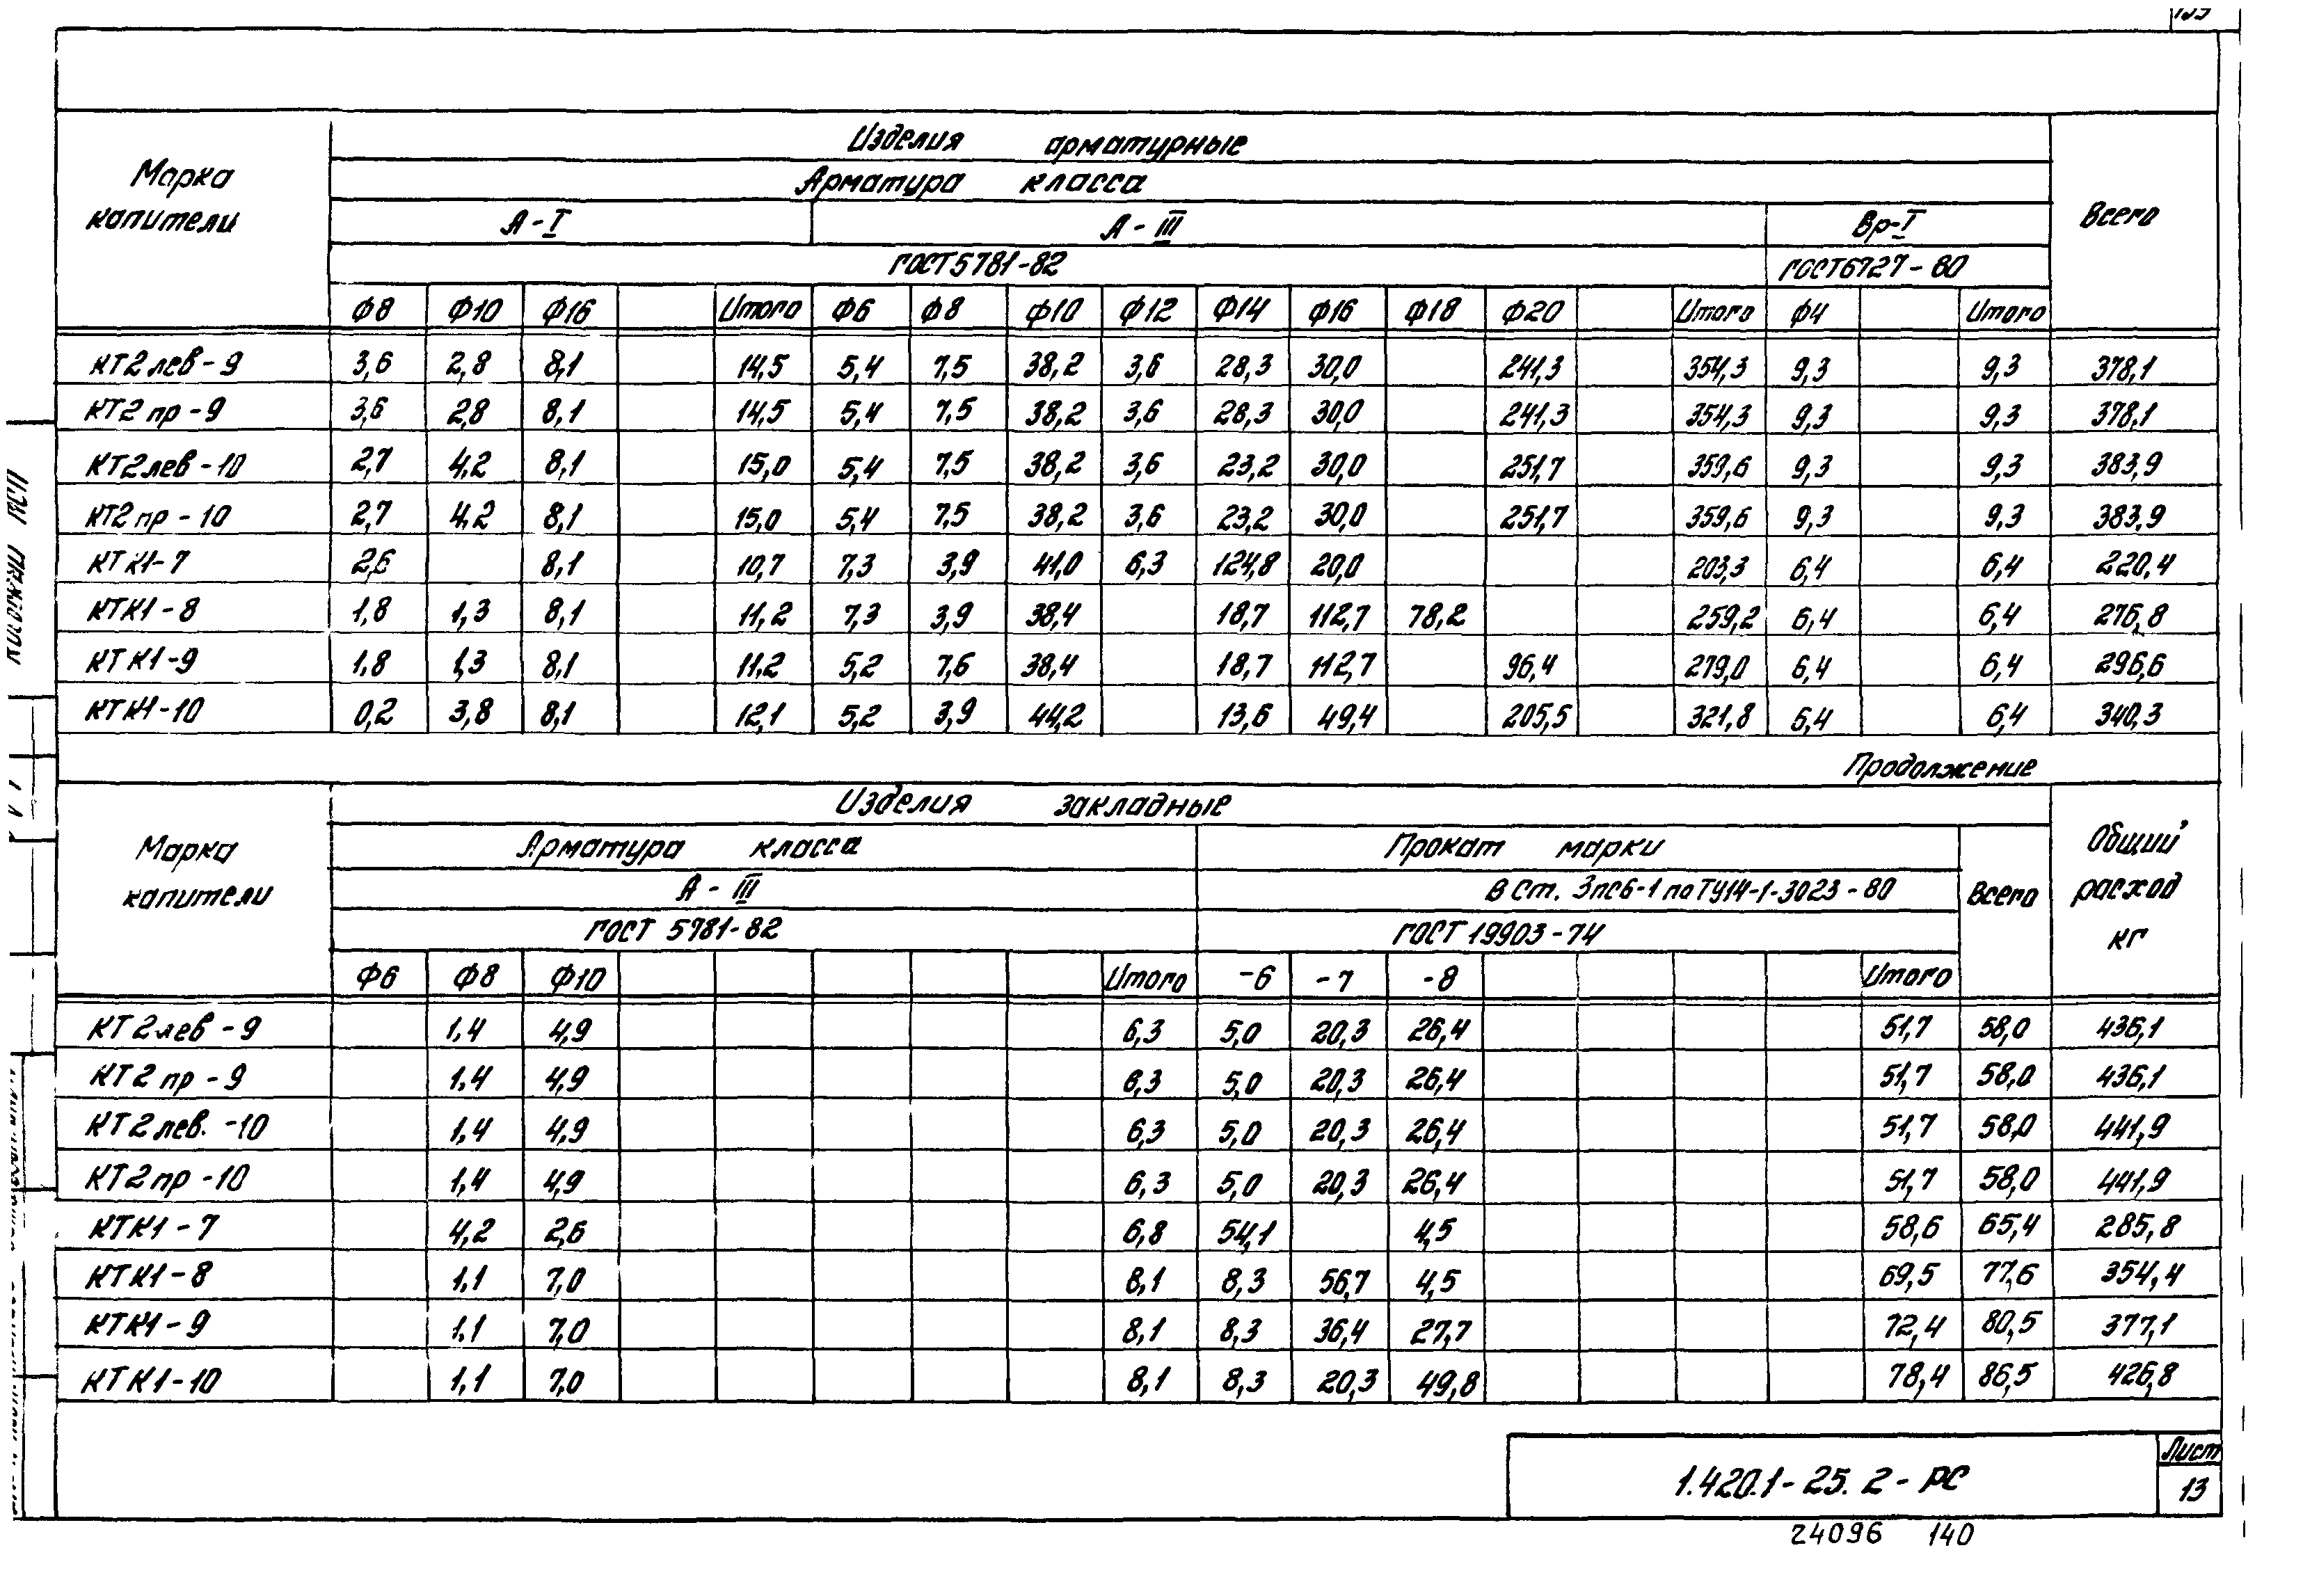 Изделия арматурные
Марка капители
Арматура класса
Всего
А-I А-III Вр-I
ГОСТ 5781-82 ГОСТ 6727-80
Ф8 Ф10 Ф16 Итого Ф6 Ф8 Ф10 Ф12 Ф14 Ф16 Ф18 Ф20 Итого Ф4 Итого
КТ2лев-9 3,6 2,8 8,1 14,5 5,4 7,5 38,2 3,6 28,3 30,0 241,3 354,3 9,3 9,3 378,1
КТ2пр-9 3,6 28 8,1 14,5 5,4 7,5 38,2 3,6 28,3 30,0 241,3 354,3 9,3 9,3 378,1
КТ2лев-10 2,7 4,2 8,1 15,0 5,4 7,5 38,2 3,6 23,2 30,0 251,7 359,6 9,3 9,3 383,9
КТ2пр-10 2,7 4,2 8,1 15,0 5,4 7,5 38,2 3,6 23,2 30,0 251,7 359,6 9,3 9,3 383,9
КТК1-7 2,6 8,1 10,7 7,3 3,9 41,0 6,3 124,8 20,0 203,3 6,4 6,4 220,4
КТК1-8 1,8 1,3 8,1 11,2 7,3 3,9 38,4 18,7 112,7 78,2 259,2 6,4 6,4 276,8
КТК1-9 1,8 1,3 8,1 11,2 5,2 7,6 38,4 18,7 112,7 96,4 279,0 6,4 6,4 296,6
КТК1-10 0,2 3,8 8,1 12,1 5,2 3,9 44,2 13,6 49,4 205,5 321,8 6,4 6,4 340,3
Продолжение
Изделия закладные
Марка капители
Арматура класса Прокат марки
Всего
Общий расход кг
А-III В Ст. 3пс6-1 по ТУ14-1-3023-80
ГОСТ 5781-82 ГОСТ 19903-74
Ф6 Ф8 Ф10 Итого -6 -7 -8 Итого
КТ2лев-9 1,4 4,9 6,3 5,0 20,3 26,4 51,7 58,0 436,1
КТ2пр-9 1,4 4,9 6,3 5,0 20,3 26,4 51,7 58,0 436,1
КТ2лев.-10 1,4 4,9 6,3 5,0 20,3 26,4 51,7 58,0 441,9
КТ2пр-10 1,4 4,9 6,3 5,0 20,3 26,4 51,7 58,0 441,9
КТК1-7 4,2 2,6 6,8 54,1 4,5 58,6 65,4 285,8
КТК1-8 1,1 7,0 8,1 8,3 56,7 4,5 69,5 77,6 354,4
КТК1-9 1,1 7,0 8,1 8,3 36,4 27,7 72,4 80,5 377,1
КТК1-10 1,1 7,0 8,1 8,3 20,3 49,8 78,4 86,5 426,8
1.420.1-25.2-РС
Лист
13
24096 140